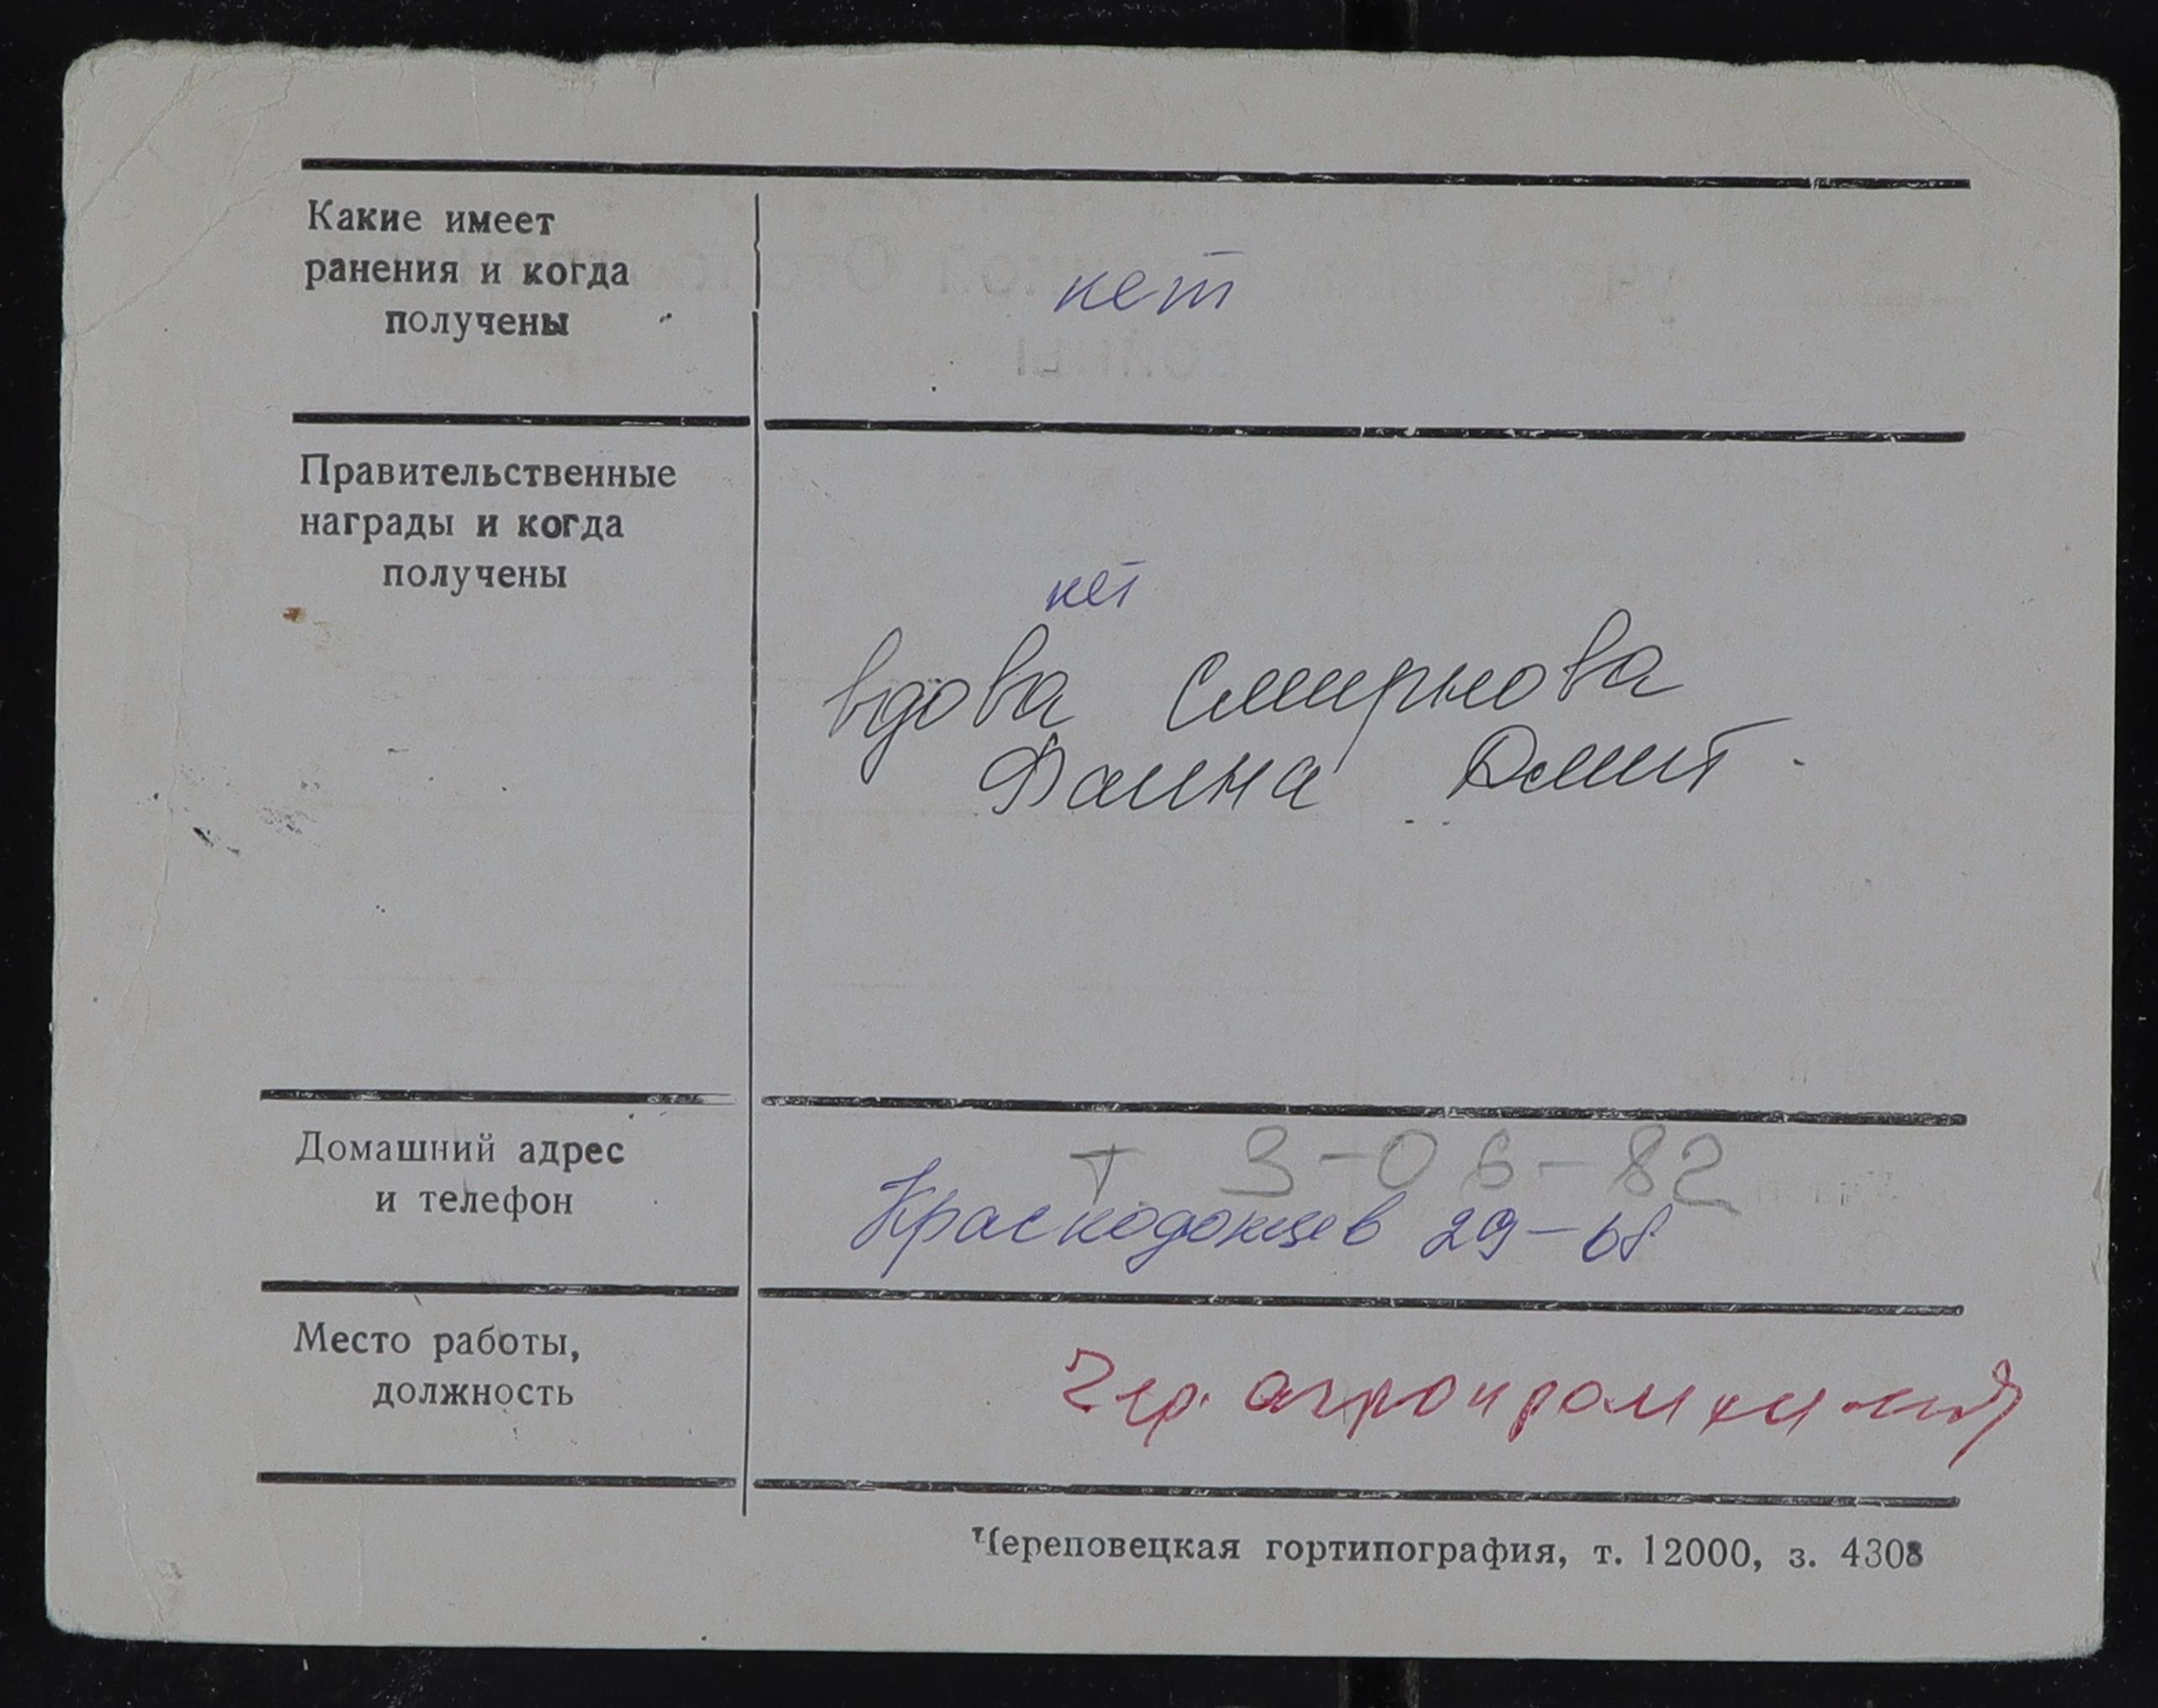 Какие имеет
ранения и когда
получены
нет
Правительственные
награды и когда
получены
нет
вдова Смирнова
Фаина Дмит.
Домашний адрес
и телефон
т 3-06-82
Краснодонцев 29-68
Место работы,
должность
Чер.
Череповецкая гортипография, т. 12000, з. 4308